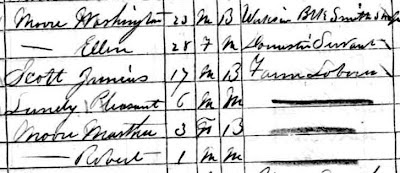 Moore Washington 23 M B Works in Blk Smith Shop
— Ellen 28 F M Domestic Servant
Scott Junius 17 M B Farm Laborer
Lundy Pleasant 6 M M
Moore Martha 3 F B
— Robert 1 M M